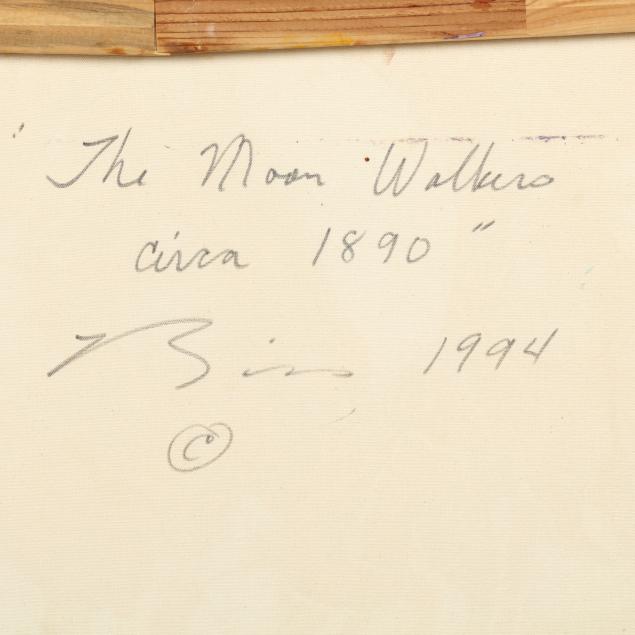 " The Moon Walkers
circa 1890 "
Biss 1994
©